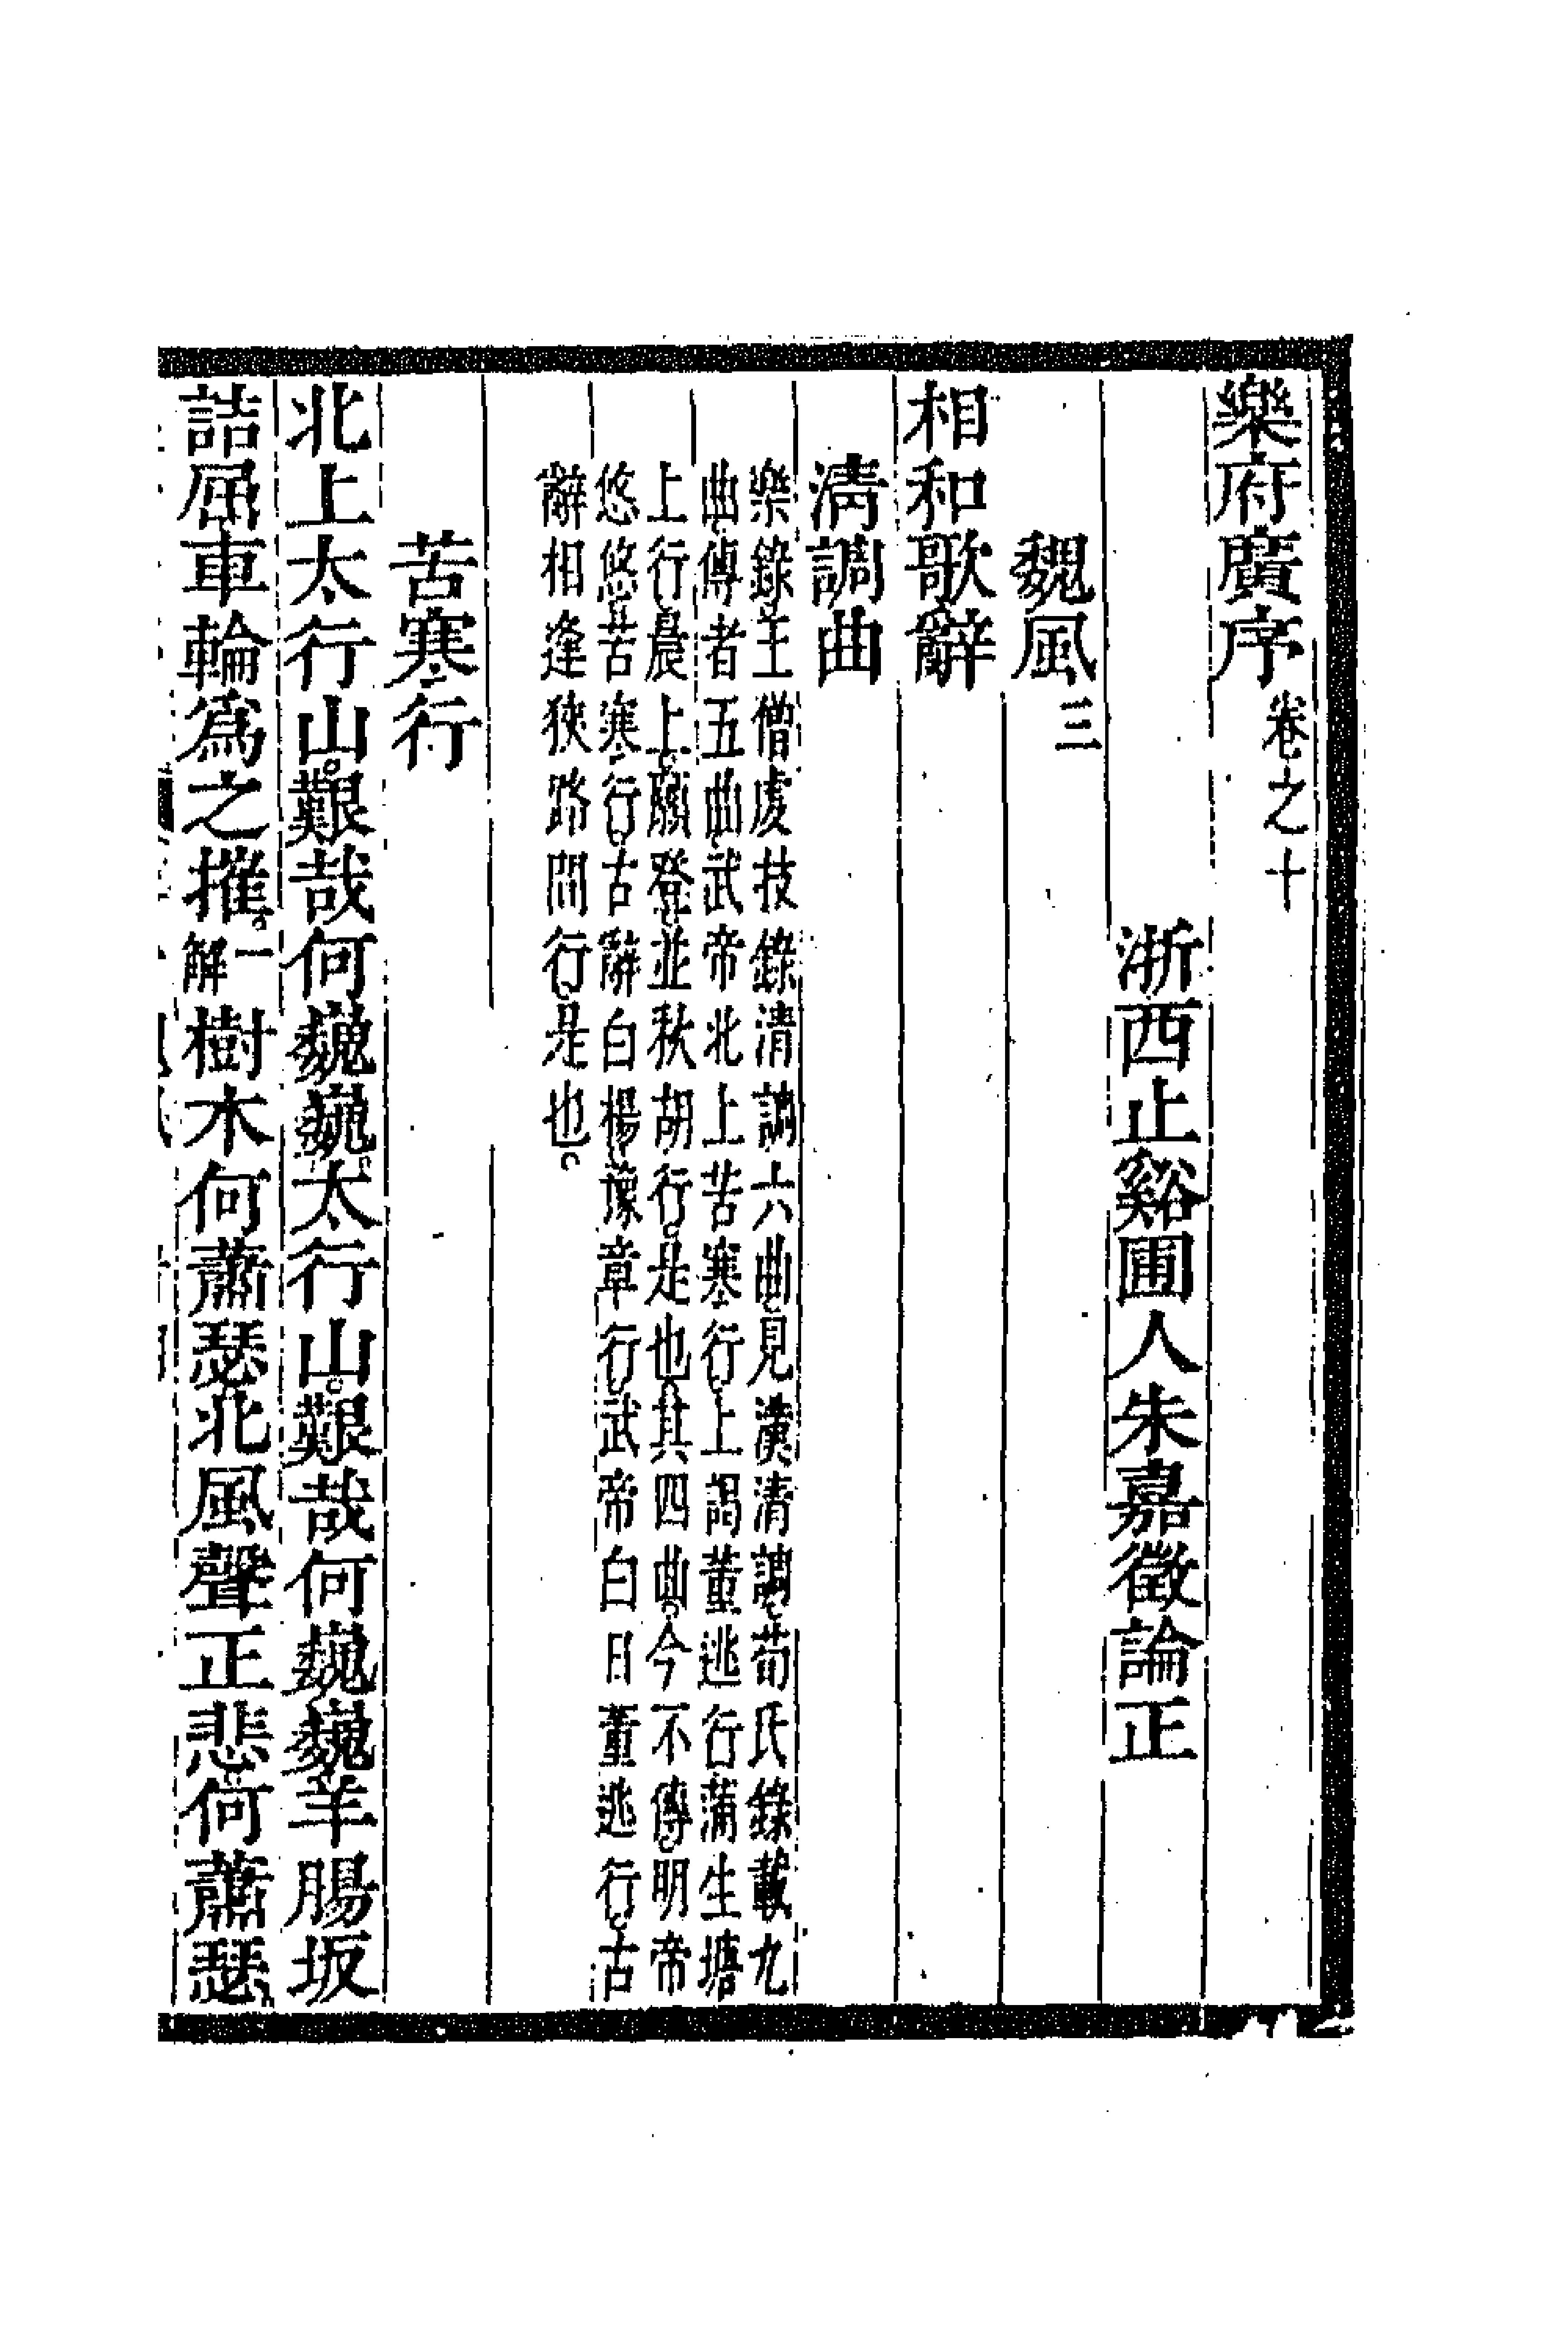 樂府廣序卷之十
浙西止谿圃人朱嘉徵論正
魏風三
相和歌辭
清調曲
樂錄王僧虔技錄清調六曲見漢清調荀氏錄載九
曲傳者五曲武帝北上苦寒行上謁董逃行蒲生塘
上行晨上願登並秋胡行是也其四曲今不傳明帝
悠悠苦寒行古辭白楊豫章行武帝白日董逃行古
辭相逢狹路間行是也
苦寒行
北上太行山艱哉何巍巍太行山艱哉何巍巍羊腸坂
詰屈車輪爲之摧一解樹木何蕭瑟北風聲正悲何蕭瑟